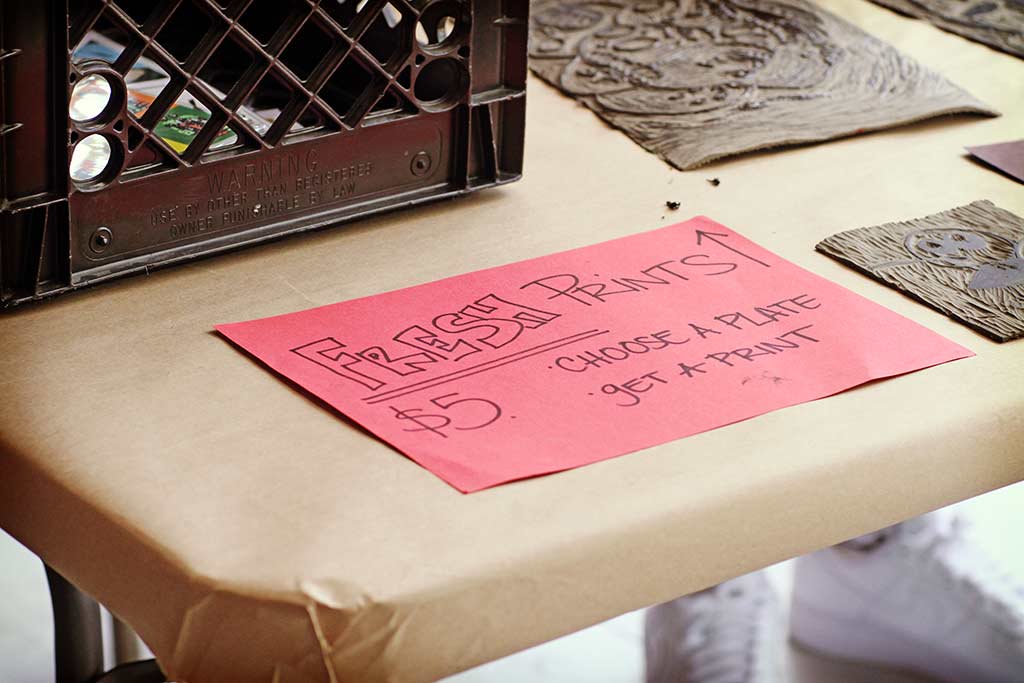 WARNING
USE BY OTHER THAN REGISTERED
OWNER PUNISHABLE BY LAW
FRESH PRINTS
$5.
· CHOOSE A PLATE
· GET A PRINT